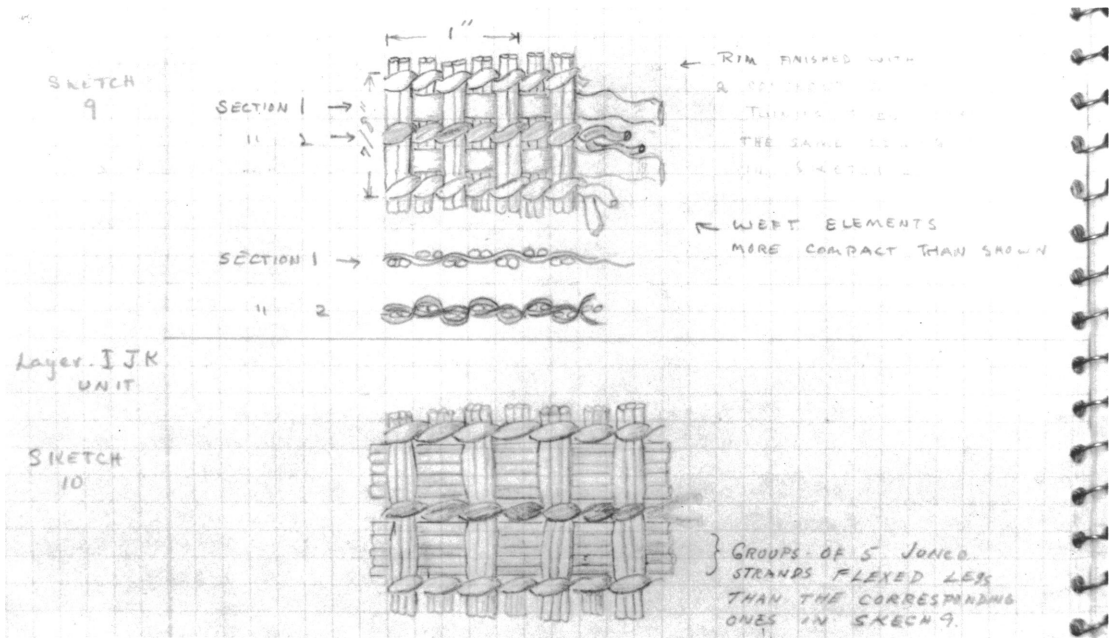 1"
SKETCH
9
SECTION 1
" 2
7/8"
RIM FINISHED WITH
THE SAME
WEFT ELEMENTS
MORE COMPACT THAN SHOWN
SECTION 1
" 2
Layer. I J K
UNIT
SKETCH
10
GROUPS OF 5 JUNCO
STRANDS FLEXED LESS
THAN THE CORRESPONDING
ONES IN SKECH 9.